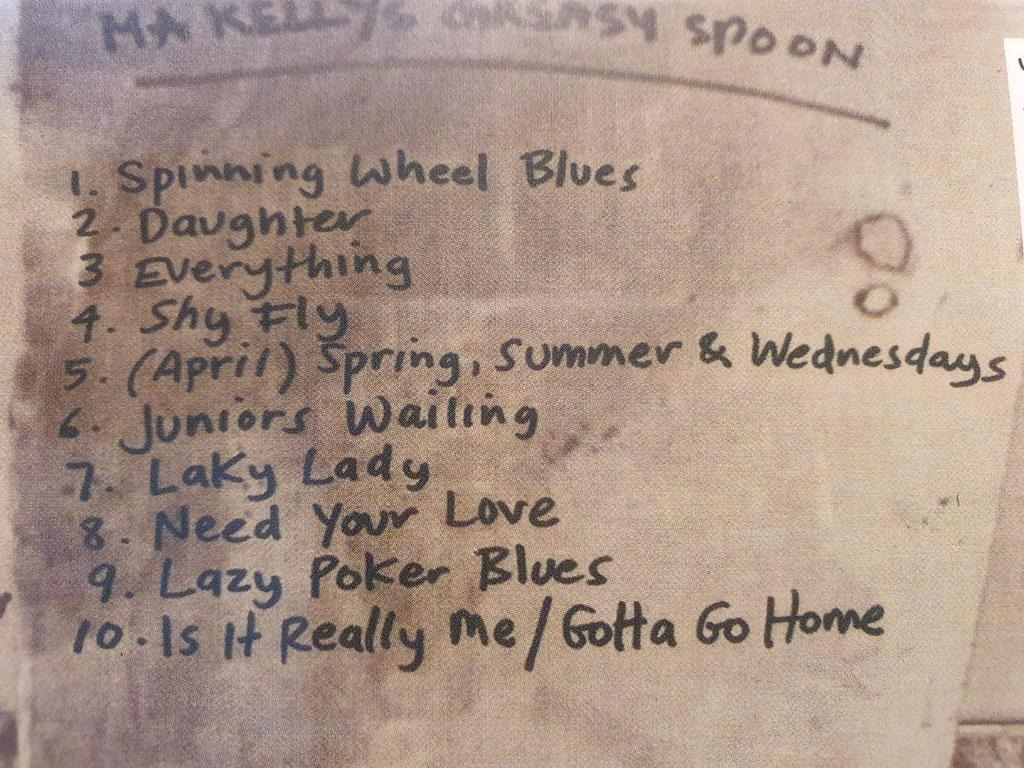 MA KELLYS GREASY SPOON
1. Spinning Wheel Blues
2. Daughter
3 Everything
4. Shy Fly
5. (April) Spring, Summer & Wednesdays
6. Juniors Wailing
7. Laky Lady
8. Need Your Love
9. Lazy Poker Blues
10. Is It Really Me/Gotta Go Home